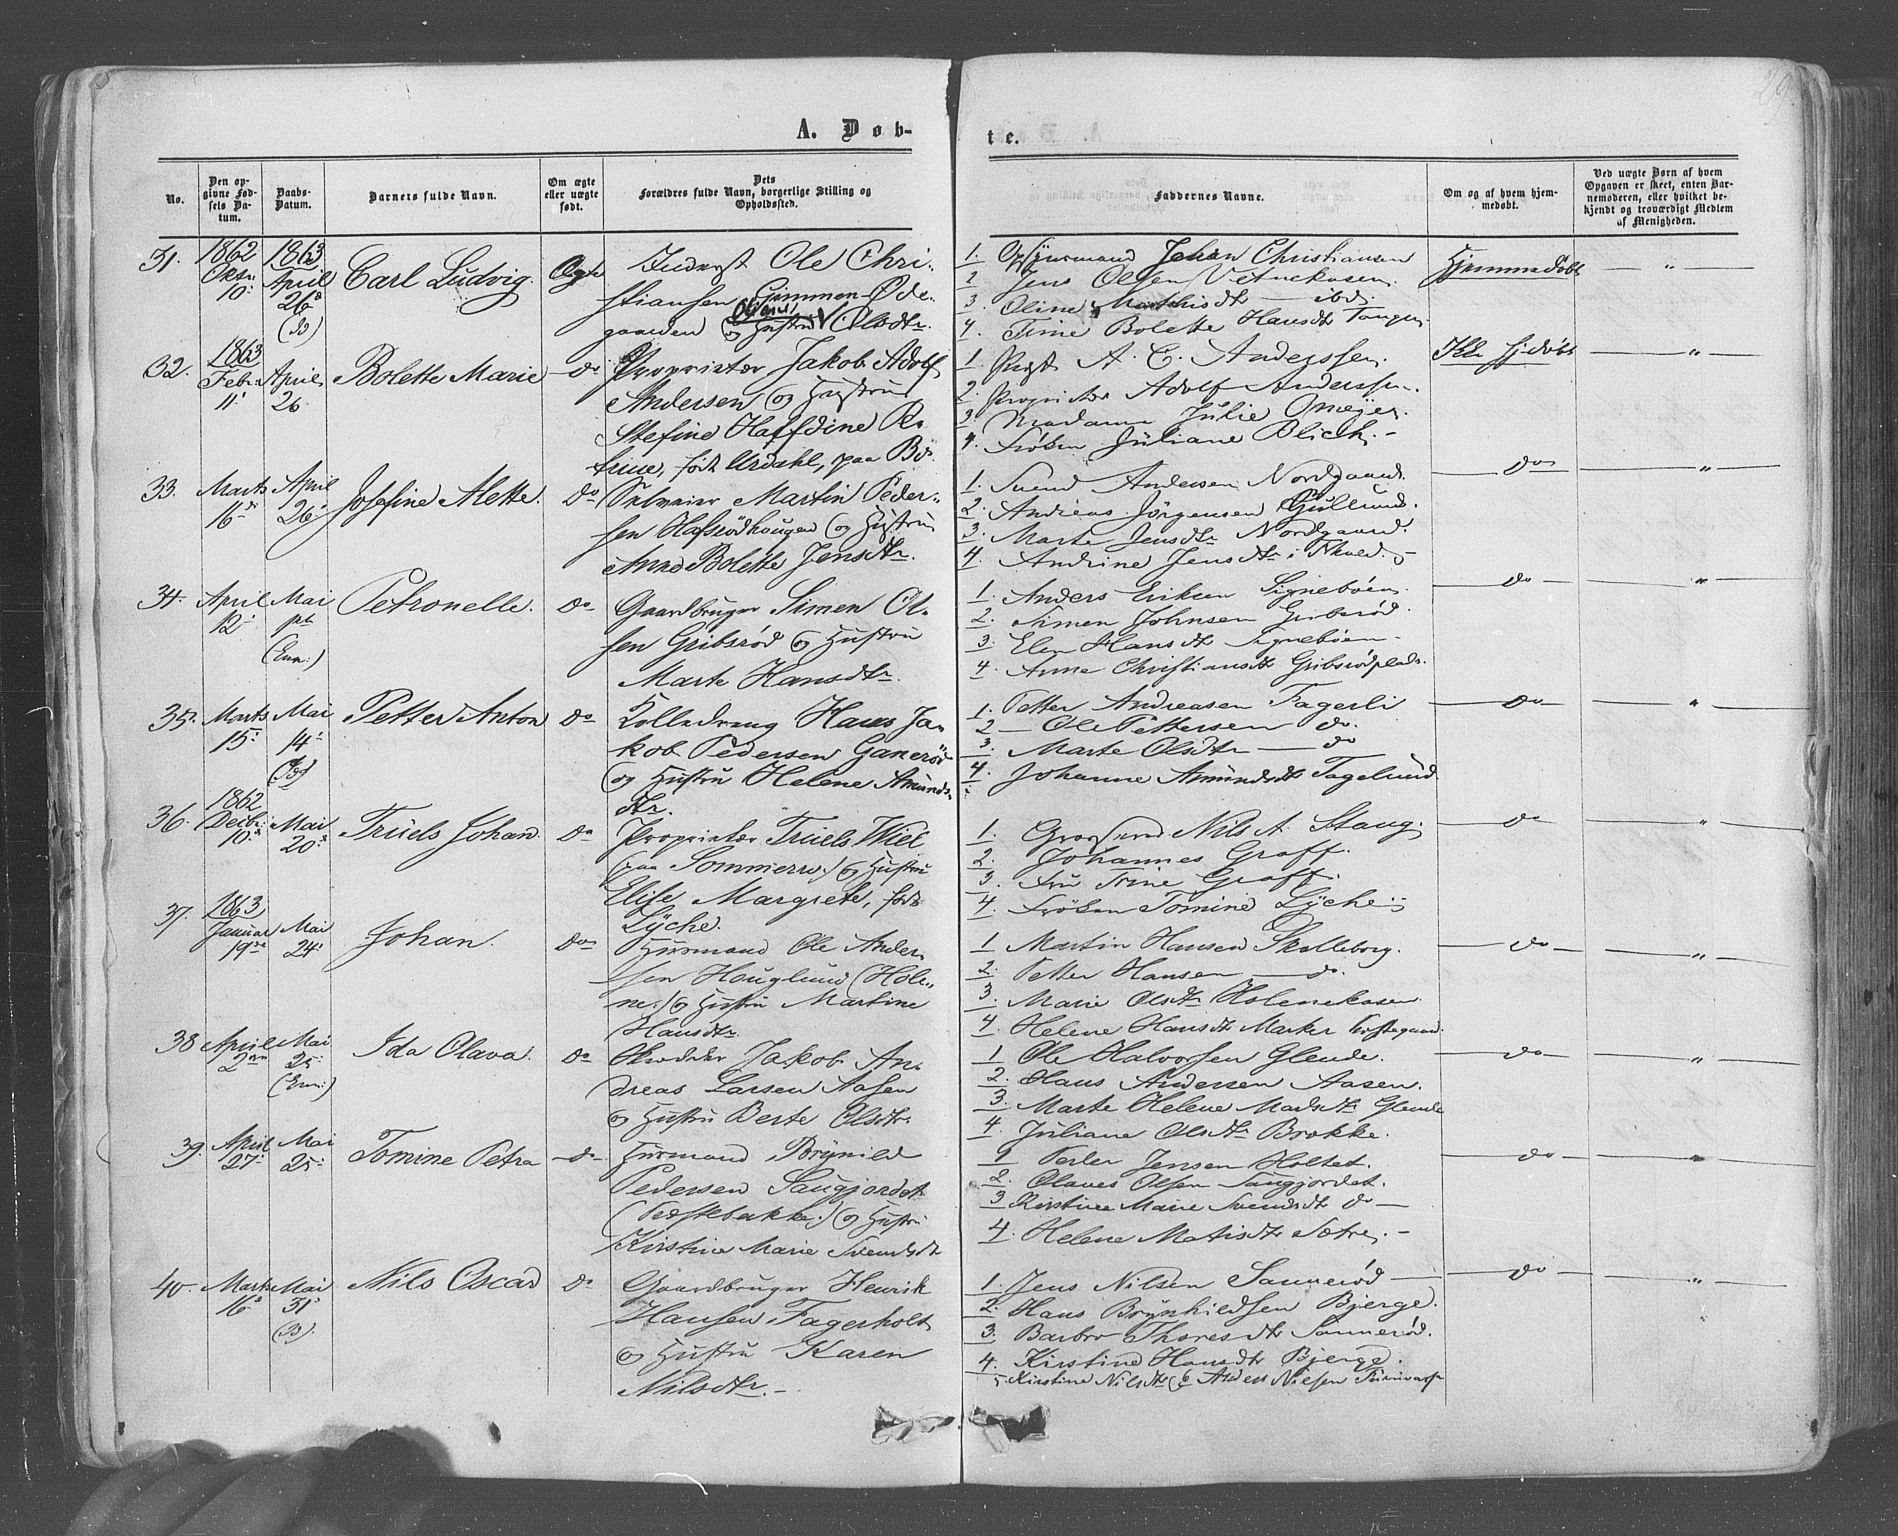 29.
A. Døb-
te.
No.
Den op-
givne Fød-
sels Da-
tum.
Daabs-
Datum.
Barnets fulde Navn.
Om ægte
eller uægte
født.
Dets
Forældres fulde Navn, borgerlige Stilling og
Opholdssted.
Faddernes Navne.
Om og af hvem hjem-
medøbt.
Ved uægte Børn af hvem
Opgaven er skeet, enten Bar-
nemoderen, eller hvilket be-
kjendt og troværdigt Medlem
af Menigheden.
31.
1862
Oktr
10
1863
April
26
Carl Ludvig.
Ægte
Inderst Ole Chri-
stiansen Gimmen Øde-
gaarden og Hustru Olsdtr.
1. Johan Christiansen
2 Jens Olsen
3. Oline Mathisdtr ibd.
4. Trine Bolette Hansdtr Tangen
Hjemmedøbt
"
32.
1863
Febr
11
April
26
Bolette Marie
do
Proprietær Jakob Adolf
Andersen og Hustru
Stefine Haffdine Ka-
trine, født Urdahl, paa Bø.
1. A. C. Anderssen.
2. Proprietær Adolf Anderssen.
3 Madame Julie Omejer.
4. Frøken Juliane Blich.
Ikke hjdøbt
"
33.
Marts
16
April
26
Josefine Alette.
Do
Martin Peder-
sen Hafsrødhaugen og Hustru
Anne Bolette Jensdtr.
1. Svend Andersen Nordgaard.
2. Andreas Jörgensen Gullund.
3. Marte Jensdtr Nordgaard.
4 Andrine Jensdtr i Skold.
Do
"
34.
April
12
Mai
(Enn:)
Petronelle.
Do
Gaardbruger Simen Ol-
sen Gribsrød og Hustru
Marte Hansdtr.
1. Anders Eriksen Signebøen.
2. Simen Johnsen Gribsrød.
3. Elen Hansdtr Signebøen
4. Anne Christiansdtr Gribsrødplads.
Do
"
35.
Marts
15
Mai
14
Petter Anton
Do
Hans Ja-
kob Pedersen Ganerød
og Hustru Helene Amunds-
dtr.
1. Petter Andreasen Fagerli
2 Ole Pettersen do.
3. Marte Olsdtr do
4. Johanne Amundsdtr Fagelund
Do
"
36.
1862
Decbr
10
Mai
20
Truels Johan.
Do
Proprietær Truels Wiel
(paa Sommerro) og Hustru
Elise Margrete, født
Lÿche.
1. Nils A. Stang.
2. Johannes Graff.
3. Fru Trine Graff.
4. Frøken Tomine Lÿche.
Do
"
37.
1863
Januar
19
Mai
24
Johan.
Do
Huusmand Ole Ander-
sen Houglund (Hole-
ne:) og Hustru Martine
Hansdtr
1 Martin Hansen Skolleborg.
2. Petter Hansen do.
3. Marie Olsdtr Holenekasen.
4. Helene Hansdtr
Do
"
38
April
2
Mai
25
(Enn:)
Ida Olava.
Do
Skræder Jakob An-
dreas Larsen Aasen
og Hustru Berte Olsdtr
1 Ole Halvorsen Glende.
2. Hans Andersen Aasen.
3. Marte Helene Madsdtr Glende
4. Juliane Olsdtr Brække.
Do
"
39.
April
27
Mai
25
Tomine Petra
do
Huusmand Brÿnild
Pedersen Saugjordet
og Hustru
Kirstine Marie Svendsdtr
1 Peder Jensen Holtet.
2. Olaves Olsen Saugjordet.
3 Kirstine Marie Svendsdtr do
4. Helene Matisdtr Sætre.
Do
"
40.
Marts
16
Mai
31
Nils Oscar
Do
Gaardbruger Henrik
Hansen Fagerholt
og Hustru Karen
Nilsdtr.
1. Jens Nilsen Sannerød
2. Hans Brÿnhildsen Bjerge.
3. Barbro Thoresdtr Sannerød.
4. Kirstine Hansdtr Bjerge.
5. Kirstine Nilsdtr 6 Anders Nielsen
Do
"